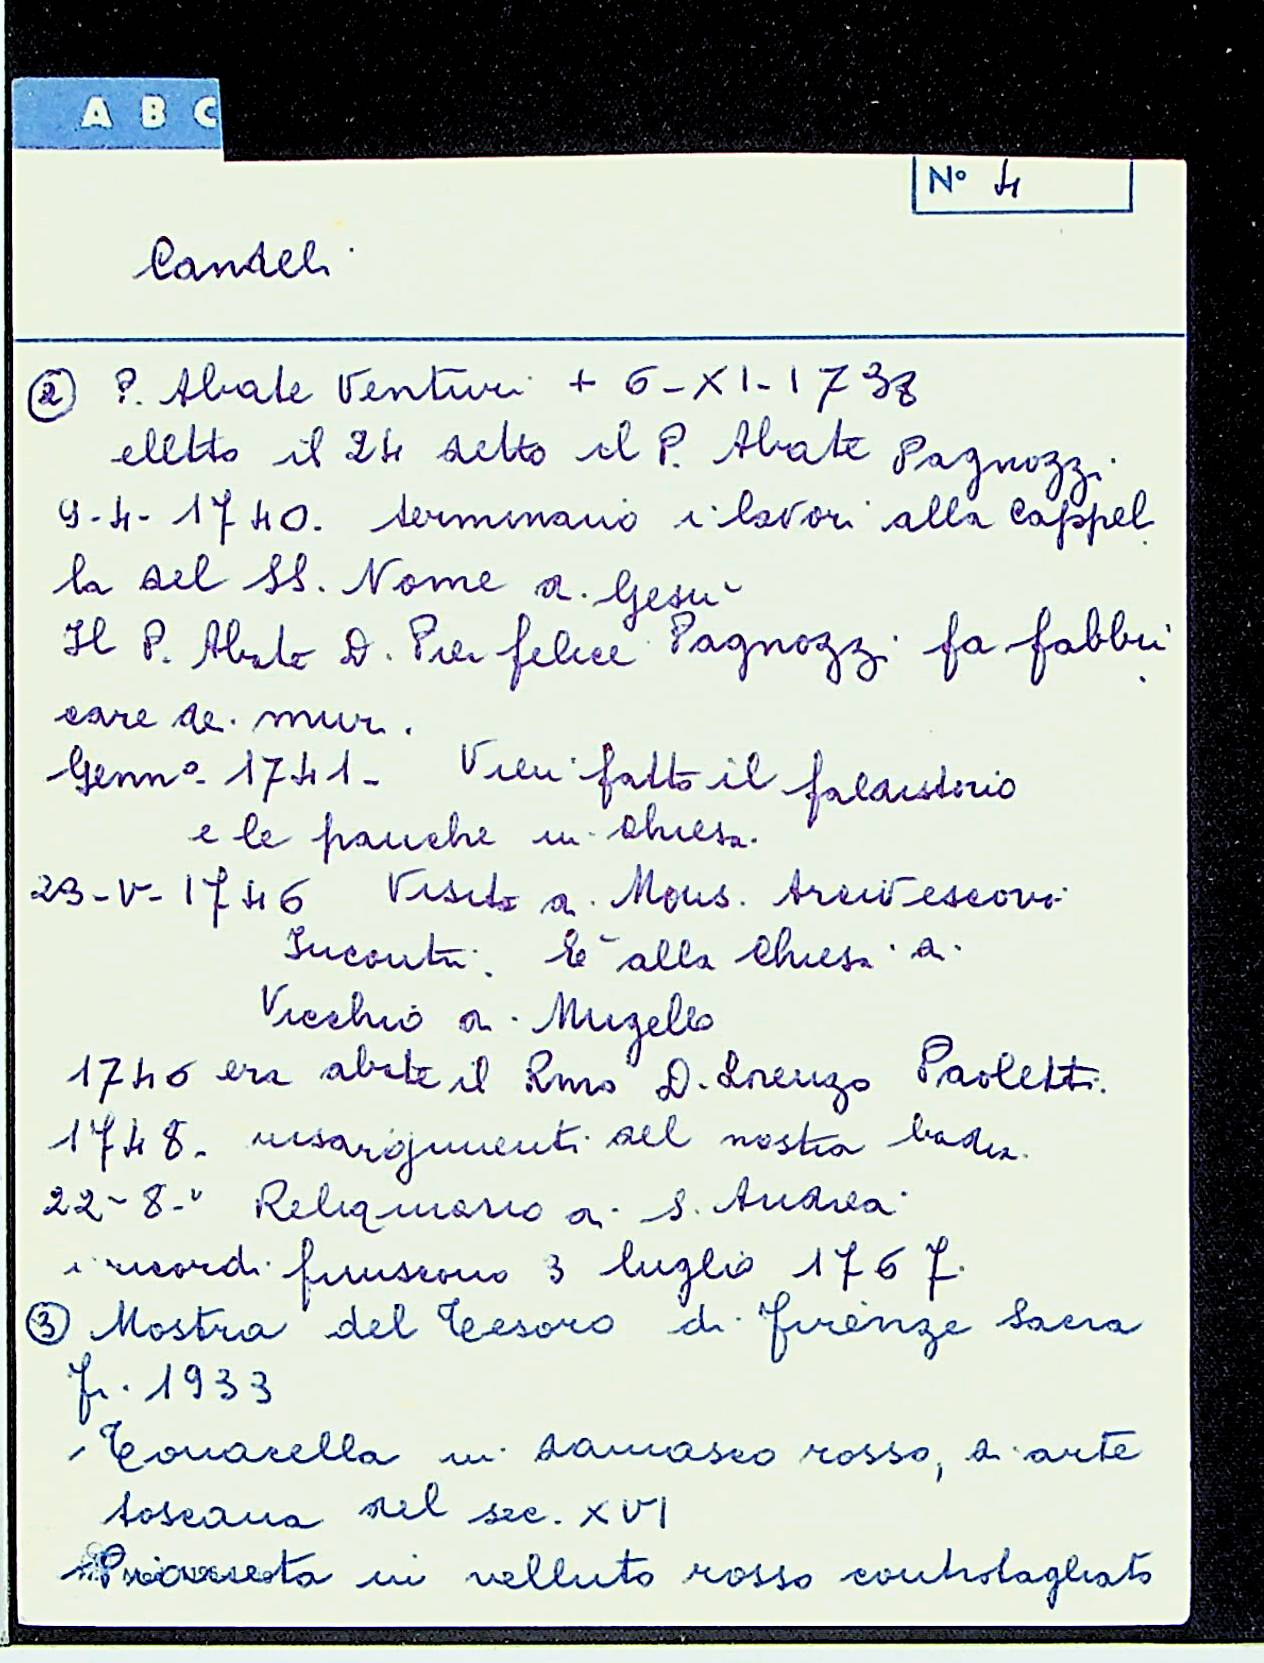 A B C
N° 4
Candeli
② P. Abate Venturi + 6-XI-1738
eletto il 24 detto il P. Abate Pagnozzi
9-4-1740. terminano i lavori alla Cappel
la del SS. Nome di Gesù
Il P. Abate D. Pier felice Pagnozzi fa fabbri
care dei muri.
Genn° 1741- Vien fatto il faldistorio
e le panche in chiesa.
23-V-1746 Visita di Mons. Arcivescovo
Incontri. È alla chiesa di
Vicchio di Mugello
1746 era abate il Rmo D. Lorenzo Paoletti.
1748. risarcimenti del nostra badia.
22-8-" Reliquiario di S. Andrea
i ricordi finiscono 3 luglio 1767.
③ Mostra del Tesoro di Firenze Sacra
Fi. 1933
Tonacella in damasco rosso, di arte
toscana del sec. XVI
Pianeta in velluto rosso controtagliato